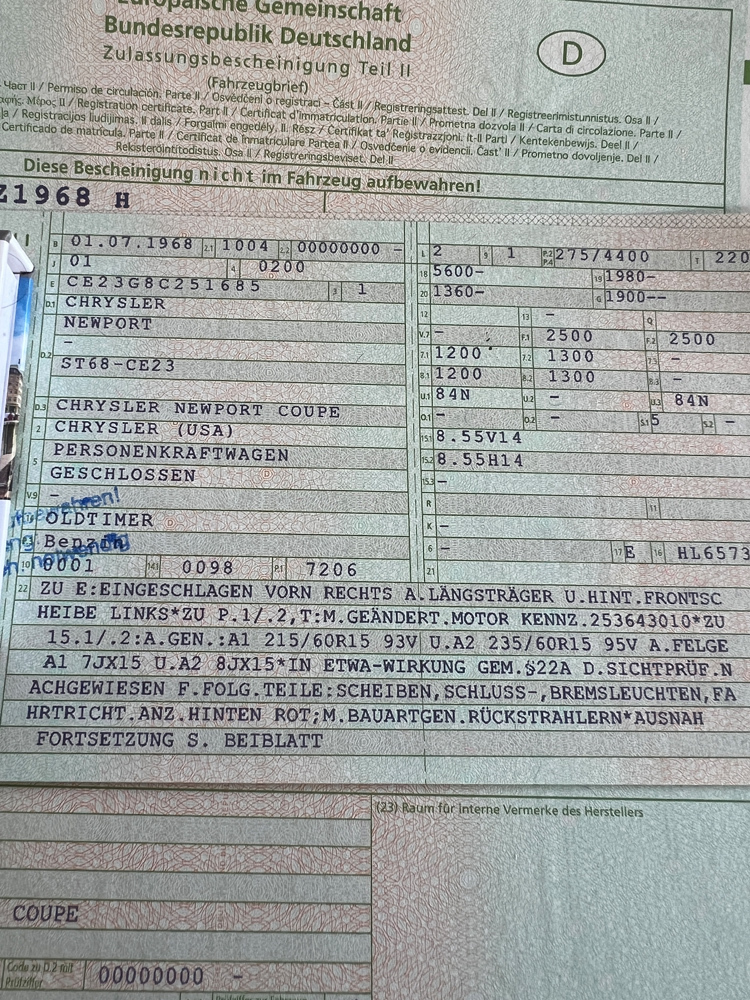 Europäische Gemeinschaft
Bundesrepublik Deutschland
D
Zulassungsbescheinigung Teil II
(Fahrzeugbrief)
Част II / Permiso de circulación. Parte II / Osvědčení o registraci – Část II / Registreringsattest. Del II / Registreerimistunnistus. Osa II /
Μέρος II / Registration certificate. Part II / Certificat d'immatriculation. Partie II / Prometna dozvola II / Carta di circolazione. Parte II /
Registracijos liudijimas. II dalis / Forgalmi engedély. II. Rész / Ċertifikat ta' Reġistrazzjoni. It-II Parti / Kentekenbewijs. Deel II /
Certificado de matrícula. Parte II / Certificat de înmatriculare Partea II / Osvedčenie o evidencii. Časť II / Prometno dovoljenje. Del II /
Rekisteröintitodistus. Osa II / Registreringsbeviset. Del II
Diese Bescheinigung nicht im Fahrzeug aufbewahren!
Z1968 H
B 01.07.1968 2.1 1004 2.2 00000000 – L 2 9 1 P.2 P.4 275/4400 T 220
J 01 4 0200 18 5600– 19 1980–
E CE23G8C251685 3 1 20 1360– G 1900––
D.1 CHRYSLER 12 13 – Q
NEWPORT V.7 – F.1 2500 F.2 2500
D.2 – 7.1 1200 7.2 1300 7.3 –
ST68-CE23 8.1 1200 8.2 1300 8.3 –
U.1 84N U.2 – U.3 84N
D.3 CHRYSLER NEWPORT COUPE O.1 – O.2 – S.1 5 S.2 –
2 CHRYSLER (USA) 15.1 8.55V14
5 PERSONENKRAFTWAGEN 15.2 8.55H14
GESCHLOSSEN 15.3 –
V.9 – R 11
OLDTIMER K –
Benzin 6 – 17 E 16 HL6573
10 0001 14.1 0098 P.1 7206 21
22 ZU E:EINGESCHLAGEN VORN RECHTS A.LÄNGSTRÄGER U.HINT.FRONTSC
HEIBE LINKS*ZU P.1/.2,T:M.GEÄNDERT.MOTOR KENNZ.253643010*ZU
15.1/.2:A.GEN.:A1 215/60R15 93V U.A2 235/60R15 95V A.FELGE
A1 7JX15 U.A2 8JX15*IN ETWA-WIRKUNG GEM.§22A D.SICHTPRÜF.N
ACHGEWIESEN F.FOLG.TEILE:SCHEIBEN,SCHLUSS-,BREMSLEUCHTEN,FA
HRTRICHT.ANZ.HINTEN ROT;M.BAUARTGEN.RÜCKSTRAHLERN*AUSNAH
FORTSETZUNG S. BEIBLATT
(23) Raum für interne Vermerke des Herstellers
COUPE
Code zu D.2 mit Prüfziffer 00000000 –